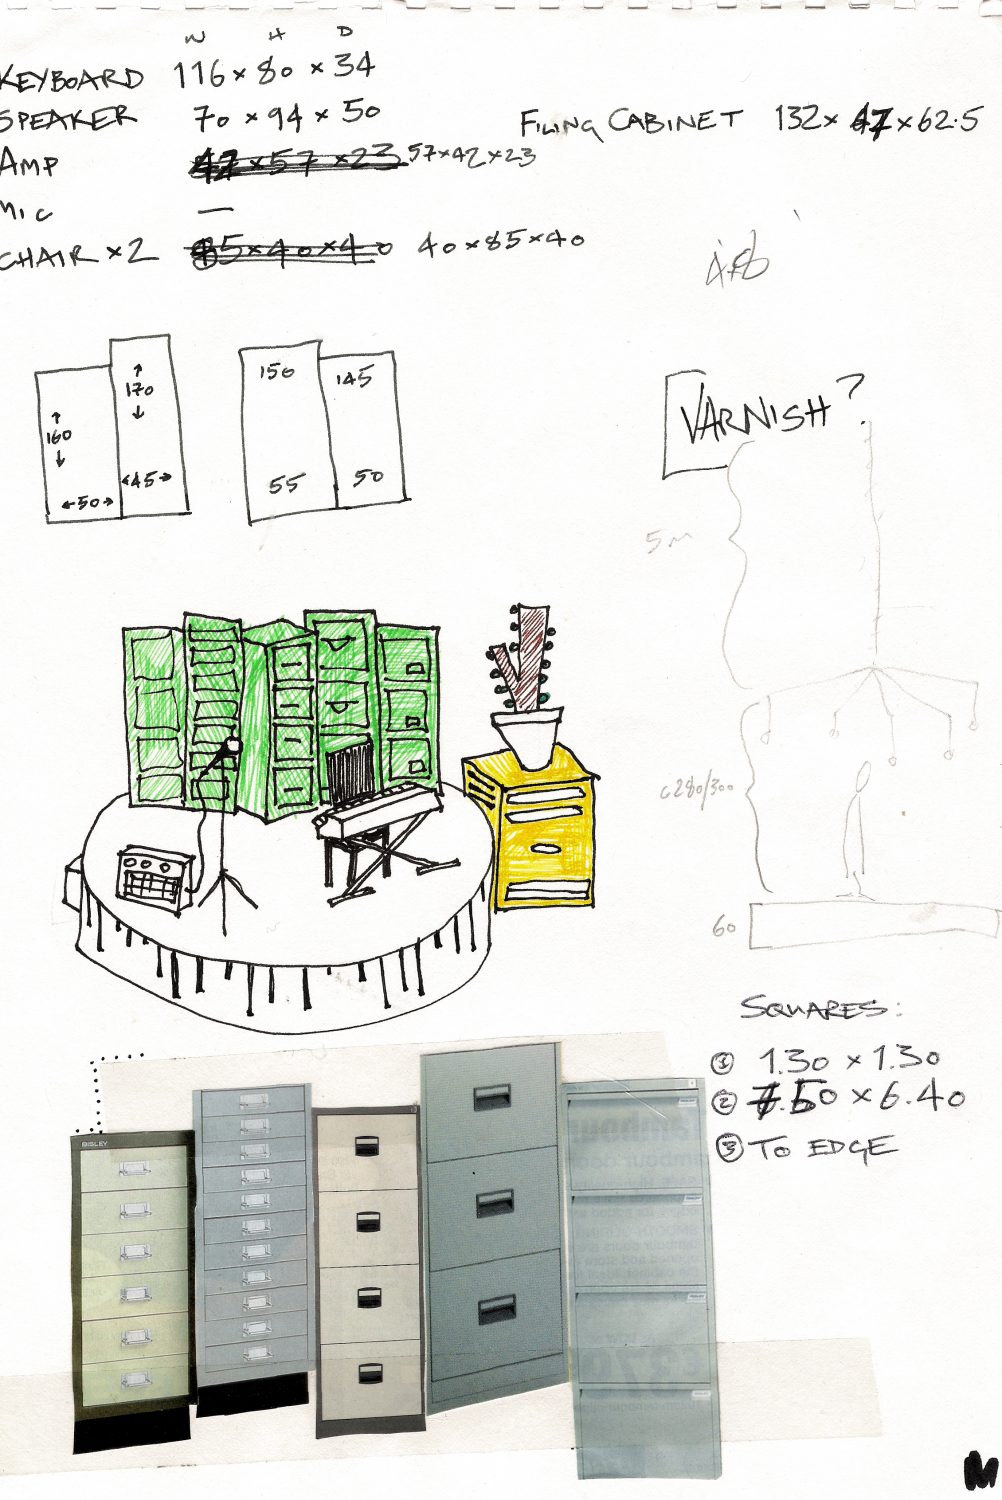 W H D
KEYBOARD 116 × 80 × 34
SPEAKER 70 × 94 × 50
FILING CABINET 132 × 47 × 62.5
AMP 47 × 57 × 23 57 × 42 × 23
MIC —
CHAIR × 2 85 × 40 × 40 40 × 85 × 40
170
160
50
45
150
145
55
50
VARNISH?
5m
c280/300
60
SQUARES:
① 1.30 × 1.30
② 7.50 × 6.40
③ TO EDGE
BISLEY